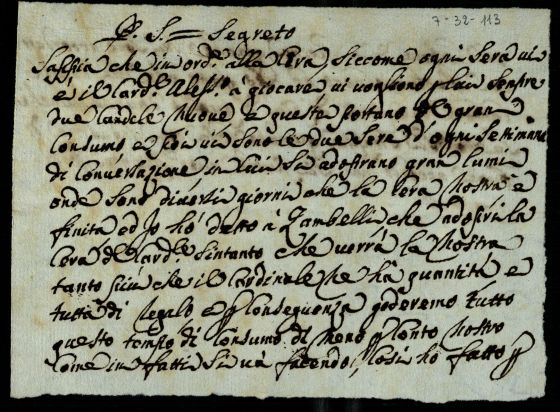 7-32-113
P. S. = Segreto
Sappia che in ord.e alla Cera siccome ogni Sera vi
è il Card.e Aless.o à giocare vi vogliono p lui sempre
due Candele Nuove e queste portano gran
Consumo e poi vi sono le due Sere d'ogni Settimana
di Conversazione in cui si adoprano gran lumi
onde sono diversi giorni che la Cera Nostra è
finita ed Io hò detto à Zambelli che adopri la
Cera d Card.e Sintanto che verrà la Nostra
tanto più che il Cardinale Ne hà quantità e
tutta di Regalo e p Conseguenza goderemo tutto
questo tempo di Consumo di Meno p Conto Nostro
Come in fatti si và facendo, Così hò fatto